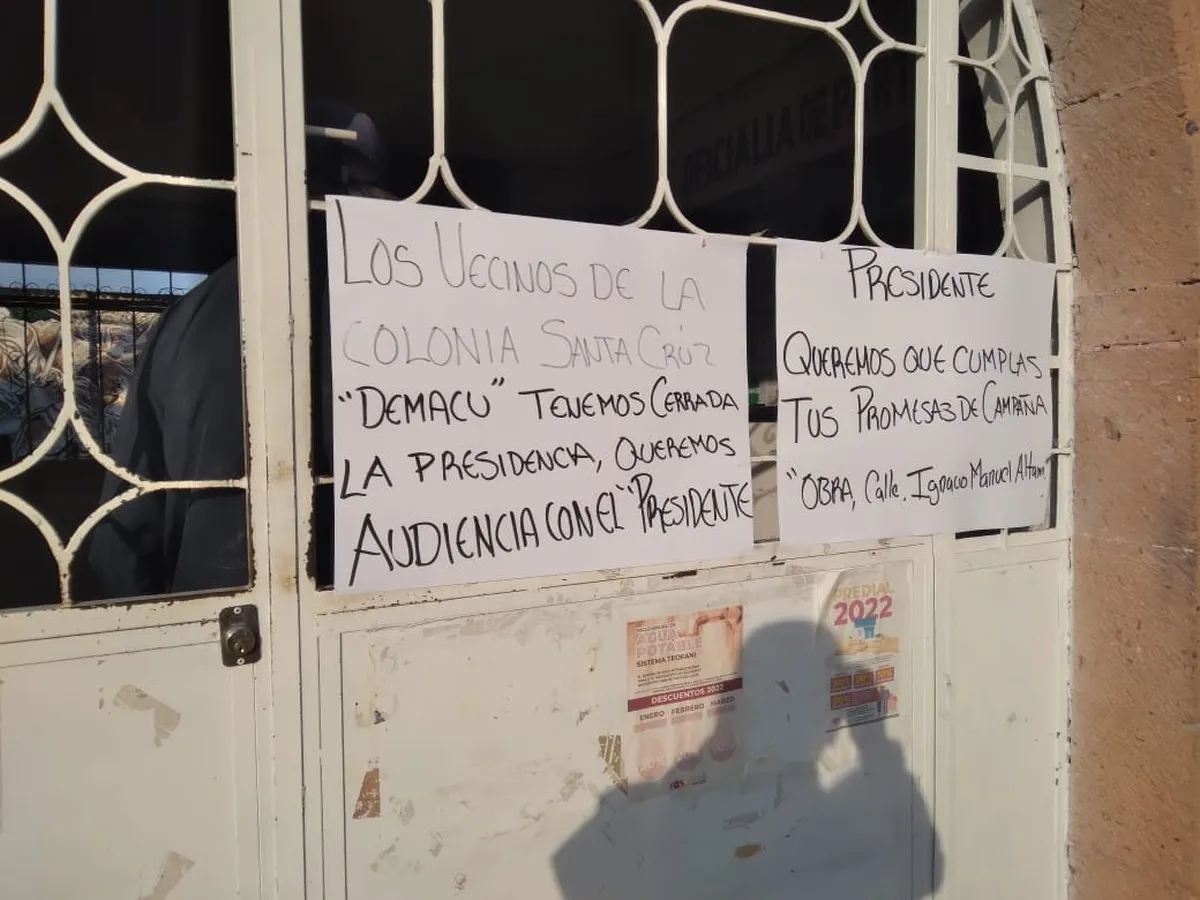 OFICIALIA DE PART
LOS VECINOS DE LA
COLONIA SANTA CRÚZ
"DEMACÚ" TENEMOS CERRADA
LA PRESIDENCIA, QUEREMOS
AUDIENCIA CON EL "PRESIDENTE
PRESIDENTE
QUEREMOS QUE CUMPLAS
TUS PROMESAS DE CAMPAÑA
"OBRA, Calle. Ignacio Manuel Altam.
AGUA
POTABLE
SISTEMA TEOFANI
DESCUENTOS 2022
ENERO FEBRERO MARZO
PREDIAL
2022